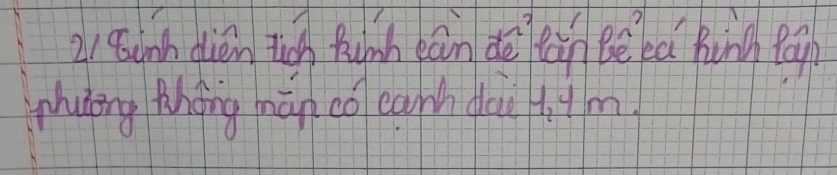 2/ Tính diện tích kính cần để lắp bể cá hình lập
phương không nắp có cạnh dài 1,4 m.